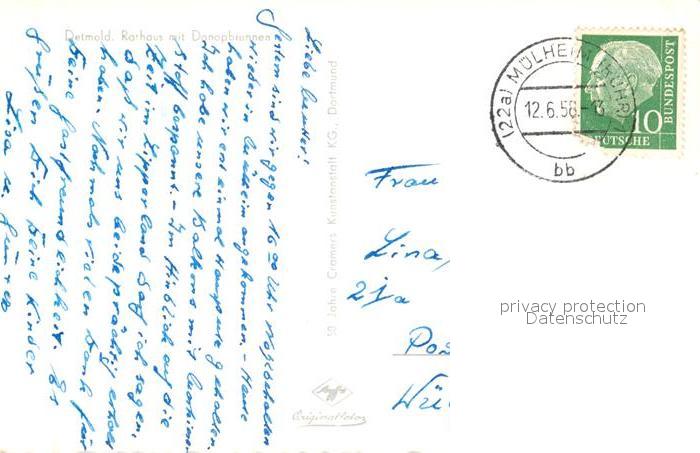 Detmold. Rathaus mit Donopbrunnen
Liebe Mutter!
Gestern sind wir gegen 16 00 Uhr wohlbehalten
wieder in Mülheim angekommen. - Heute
haben wir erst einmal Hauspute gehalten.
Ich habe unsere Balkons mit
Stoff bespannt. - Im Hinblick auf die
Zeit im Lipperland darf ich sagen,
daß wir uns beide prächtig erholt
haben. Nochmals vielen Dank für
Deine Gastfreundlichkeit. Es
grüßen Dich Deine Kinder
Lisa u. Günter
50 Jahre Cramers Kunstanstalt KG., Dortmund
Agfa
Originalfoto
(22a) MÜLHEIM (RUHR) 1
12.6.56.-13
bb
10
BUNDESPOST
DEUTSCHE
Frau
Lina,
21a
Pos
Wü
privacy protection
Datenschutz